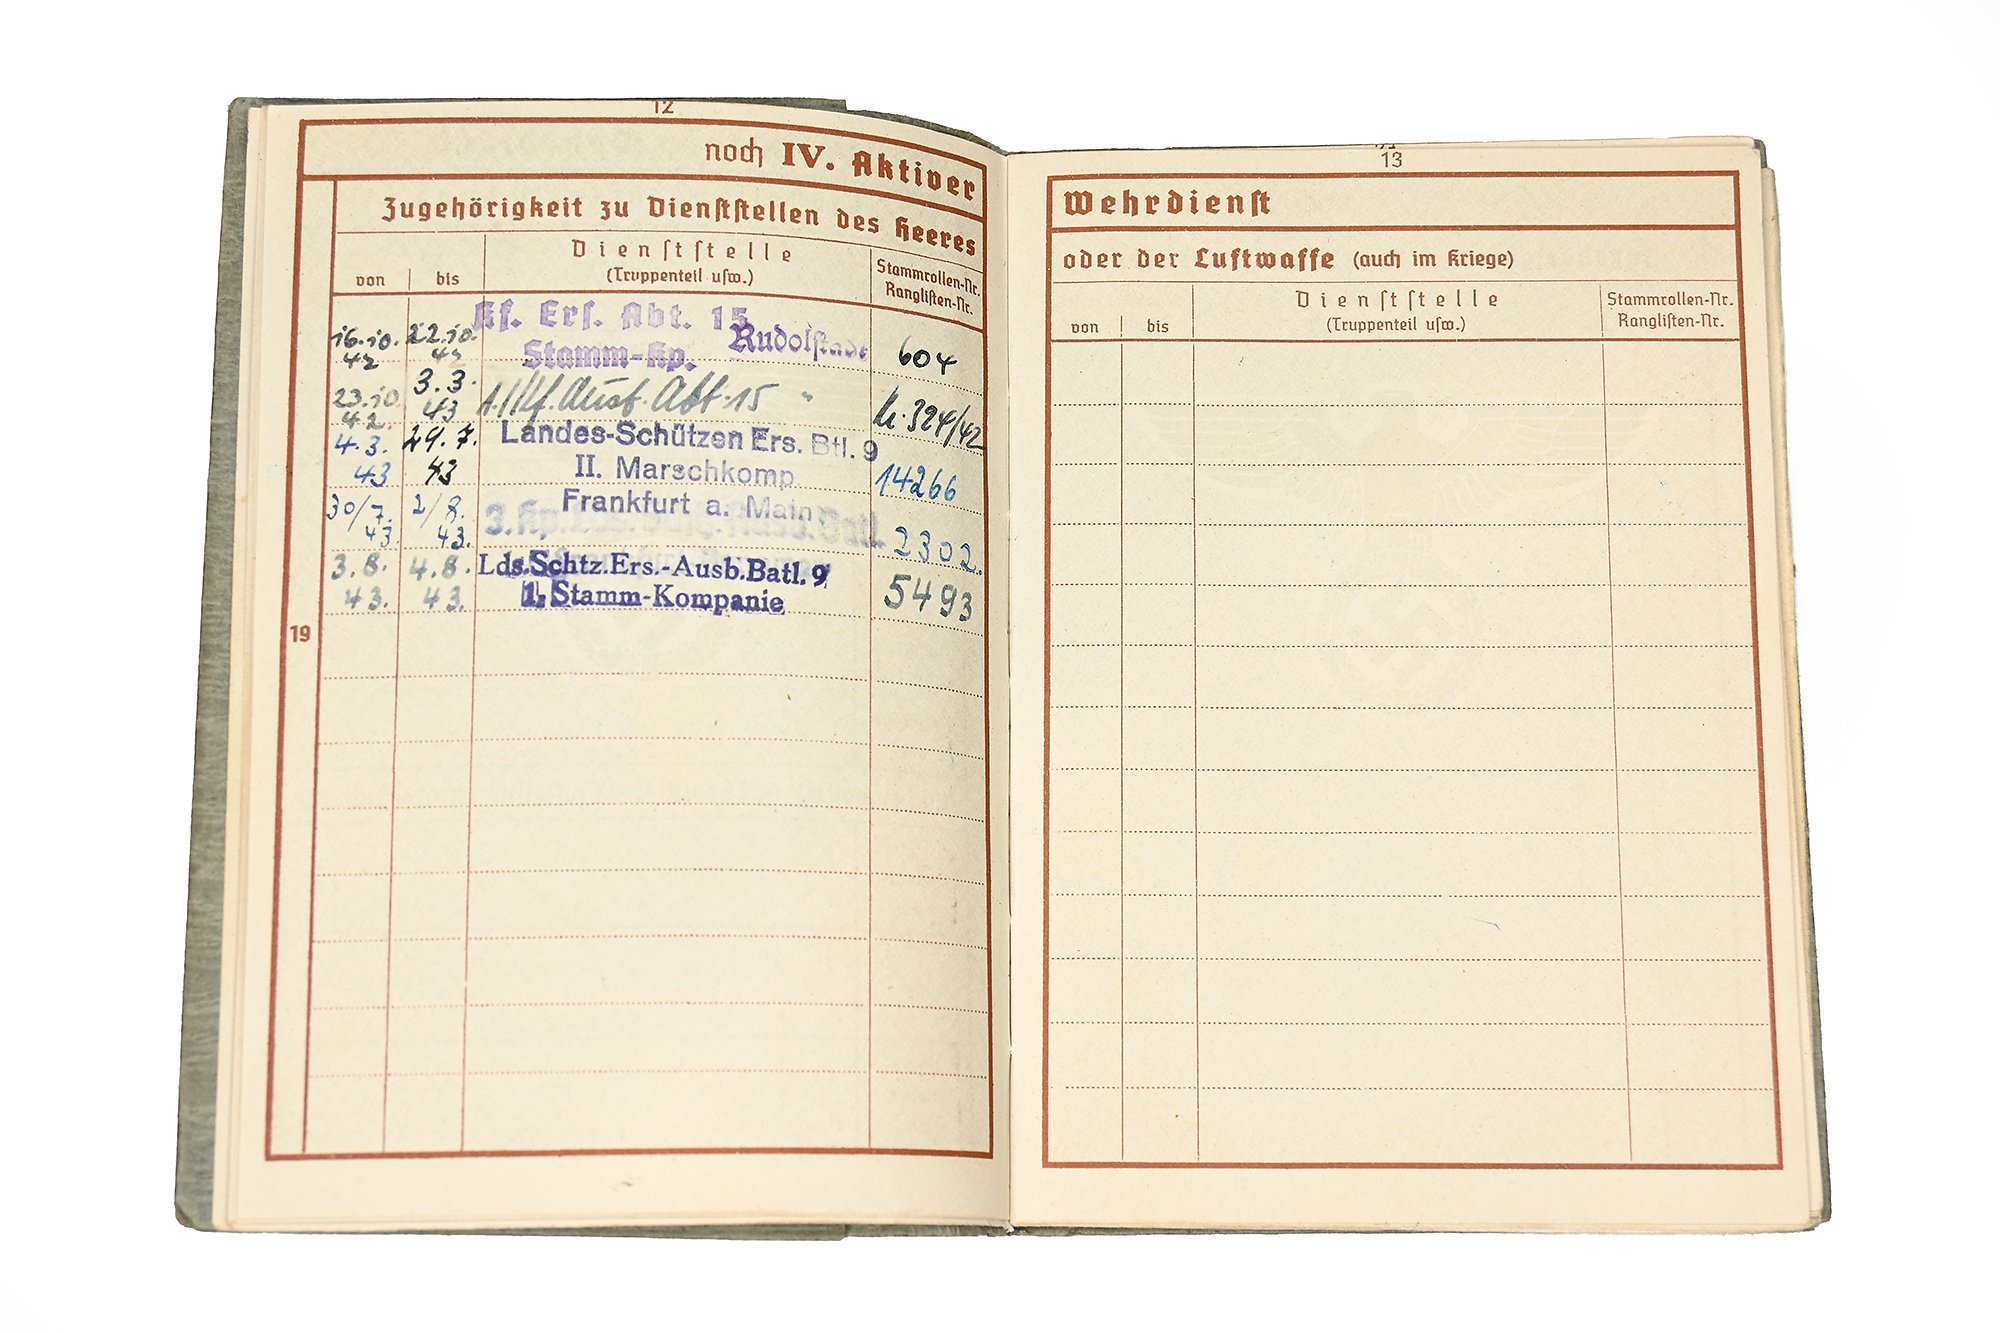 12
noch IV. Aktiver
Zugehörigkeit zu Dienststellen des Heeres
von
bis
Dienststelle
(Truppenteil usw.)
Stammrollen-Nr.
Ranglisten-Nr.
16.10.
42
22.10.
42
Kf. Ers. Abt. 15
Rudolstadt
Stamm-Kp.
604
23.10
42.
3.3.
43
1./Kf. Ausb. Abt. 15 "
324/42
4.3.
43
29.7.
43
Landes-Schützen Ers. Btl. 9
II. Marschkomp.
Frankfurt a. Main
14266
30/7.
43.
2/8.
43.
3. Kp. Batl.
2302.
3.8.
43.
4.8.
43.
Lds.Schtz.Ers.-Ausb.Batl. 9
1. Stamm-Kompanie
5493
19
13
Wehrdienst
oder der Luftwaffe (auch im Kriege)
von
bis
Dienststelle
(Truppenteil usw.)
Stammrollen-Nr.
Ranglisten-Nr.